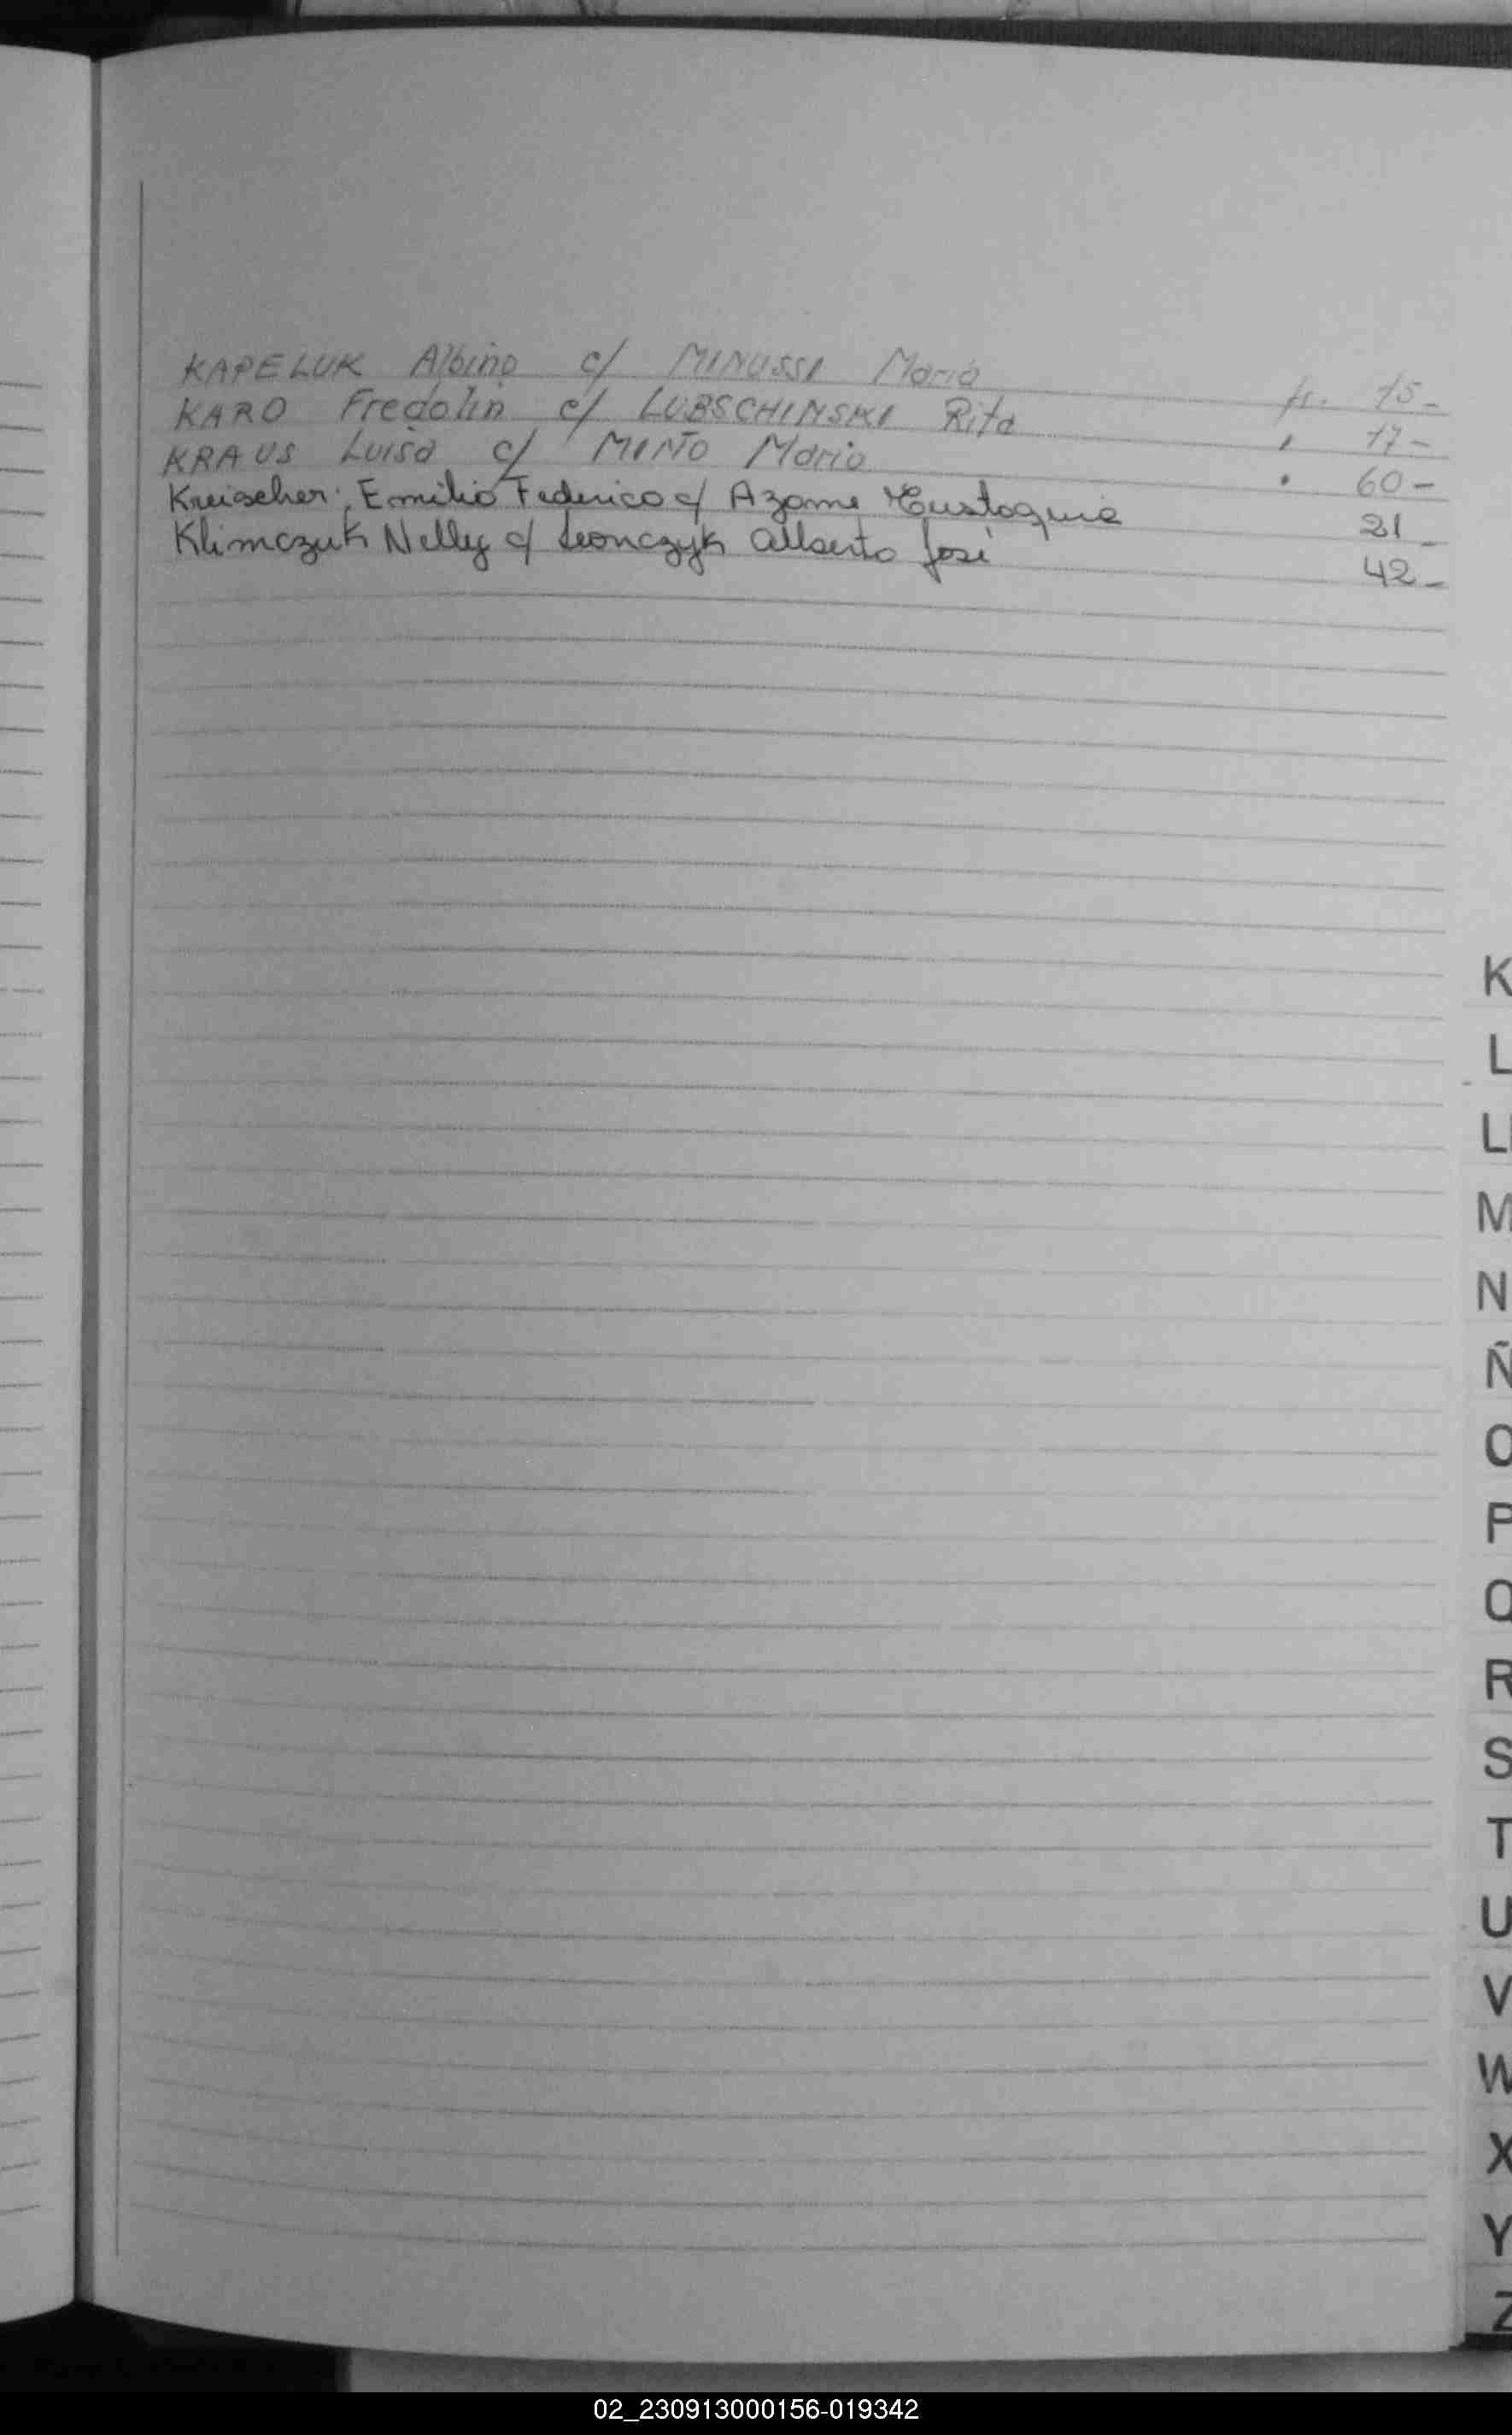 KAPELUK Albino c/ MINUSSI Maria fs. 15-
KARO Fredolin c/ LUBSCHINSKI Rita " 17-
KRAUS Luisa c/ MIÑO Mario " 60-
Kreischer, Emilio Federico c/ Azame Eustoquia 21-
Klimczuk Nelly c/ Leonczyk Alberto José 42-
K
L
Ll
M
N
Ñ
O
P
Q
R
S
T
U
V
W
X
Y
Z
02_230913000156-019342